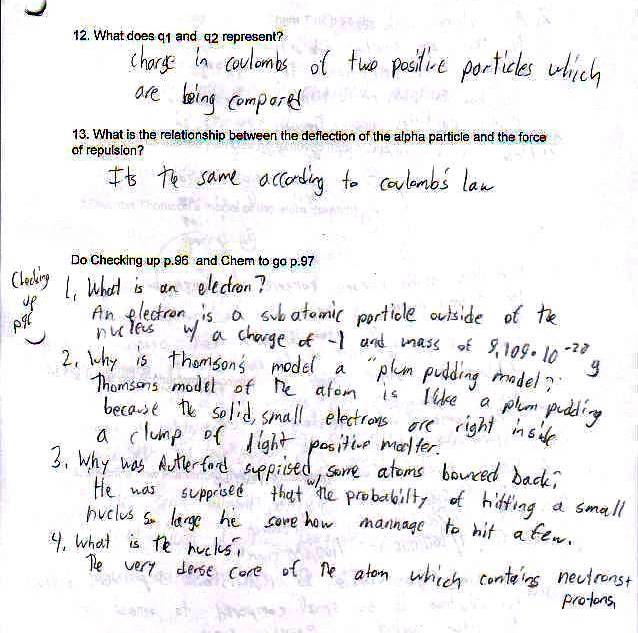 12. What does q1 and q2 represent?
charge in coulombs of two positive particles which
are being compared
13. What is the relationship between the deflection of the alpha particle and the force
of repulsion?
Its the same according to coulomb's law
Do Checking up p.96 and Chem to go p.97
Checking
up
p96
1. What is an electron?
An electron is a subatomic particle outside of the
nucleus w/ a charge of -1 and mass of 9.109·10⁻²⁸ g
2. Why is Thomson's model a "plum pudding model"?
Thomsons model of the atom is like a plum pudding
because the solid, small electrons are right inside
a clump of light positive matter.
3. Why was Rutherford supprised some atoms bounced back?
He was supprised that w/ the probabilty of hitting a small
nuclus so large he some how mannage to hit a few.
4. What is the nuclus?
The very dense core of the atom which contains neutrons+
protons,